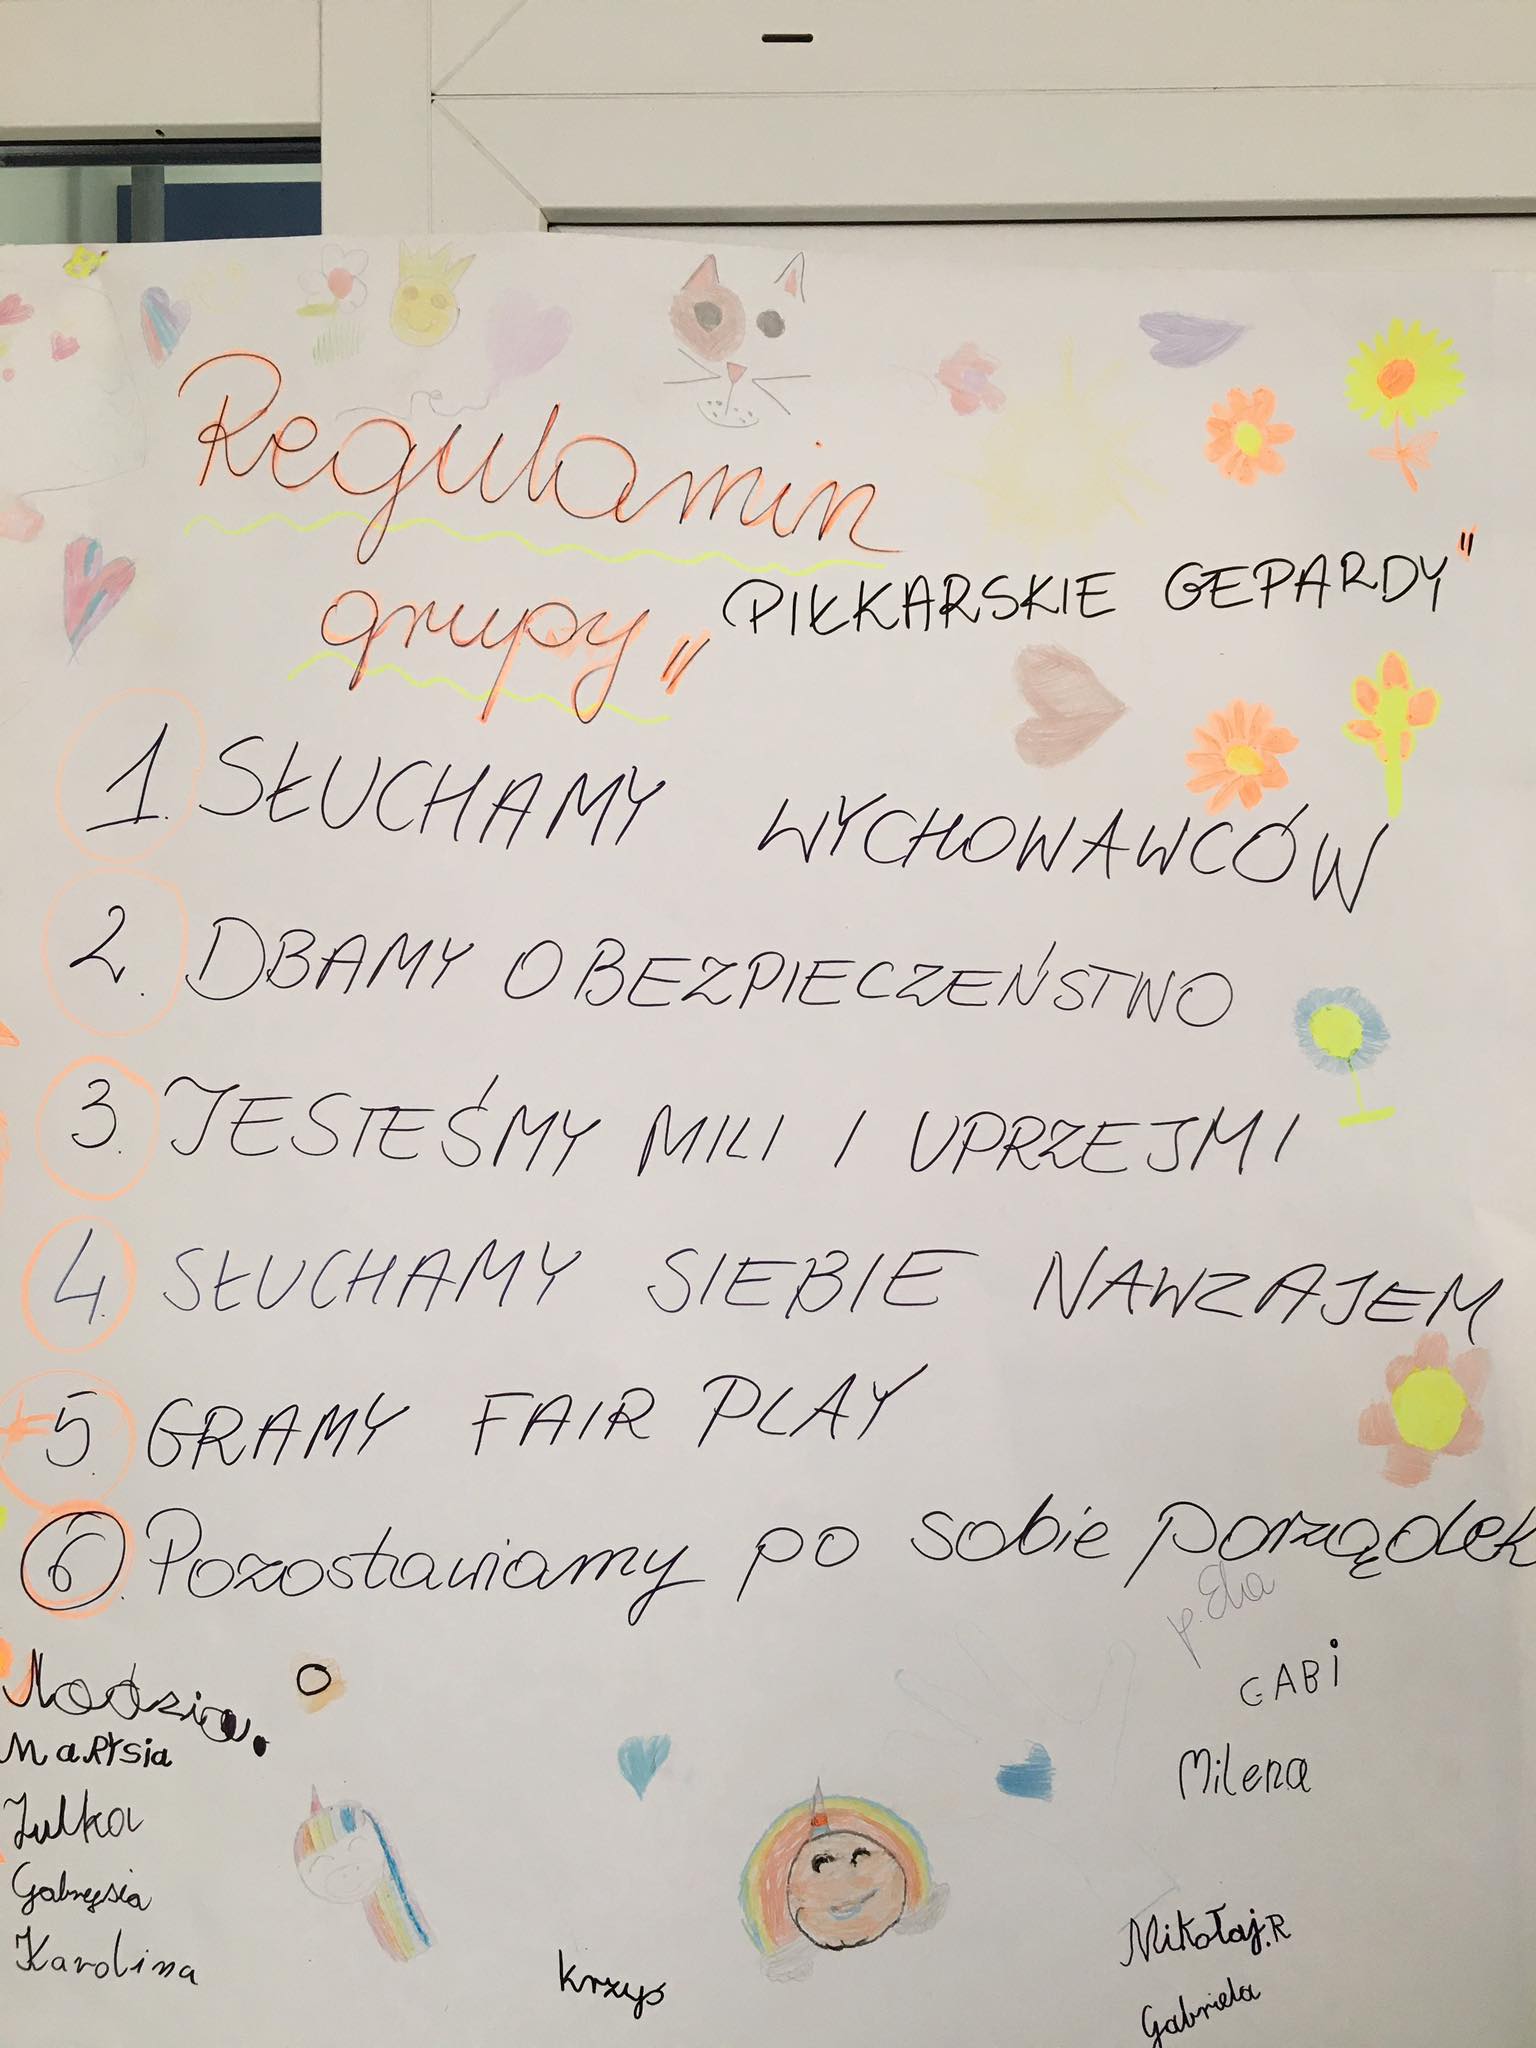 Regulamin
grupy „PIŁKARSKIE GEPARDY"
1. SŁUCHAMY WYCHOWAWCÓW
2. DBAMY O BEZPIECZEŃSTWO
3. JESTEŚMY MILI I UPRZEJMI
4. SŁUCHAMY SIEBIE NAWZAJEM
5. GRAMY FAIR PLAY
6. Pozostawiamy po sobie porządek
p. Ela
GABi
Milena
Mikołaj.R
Gabriela
Nadzia.
Martsia
Julka
Gabrysia
Karolina
krzys